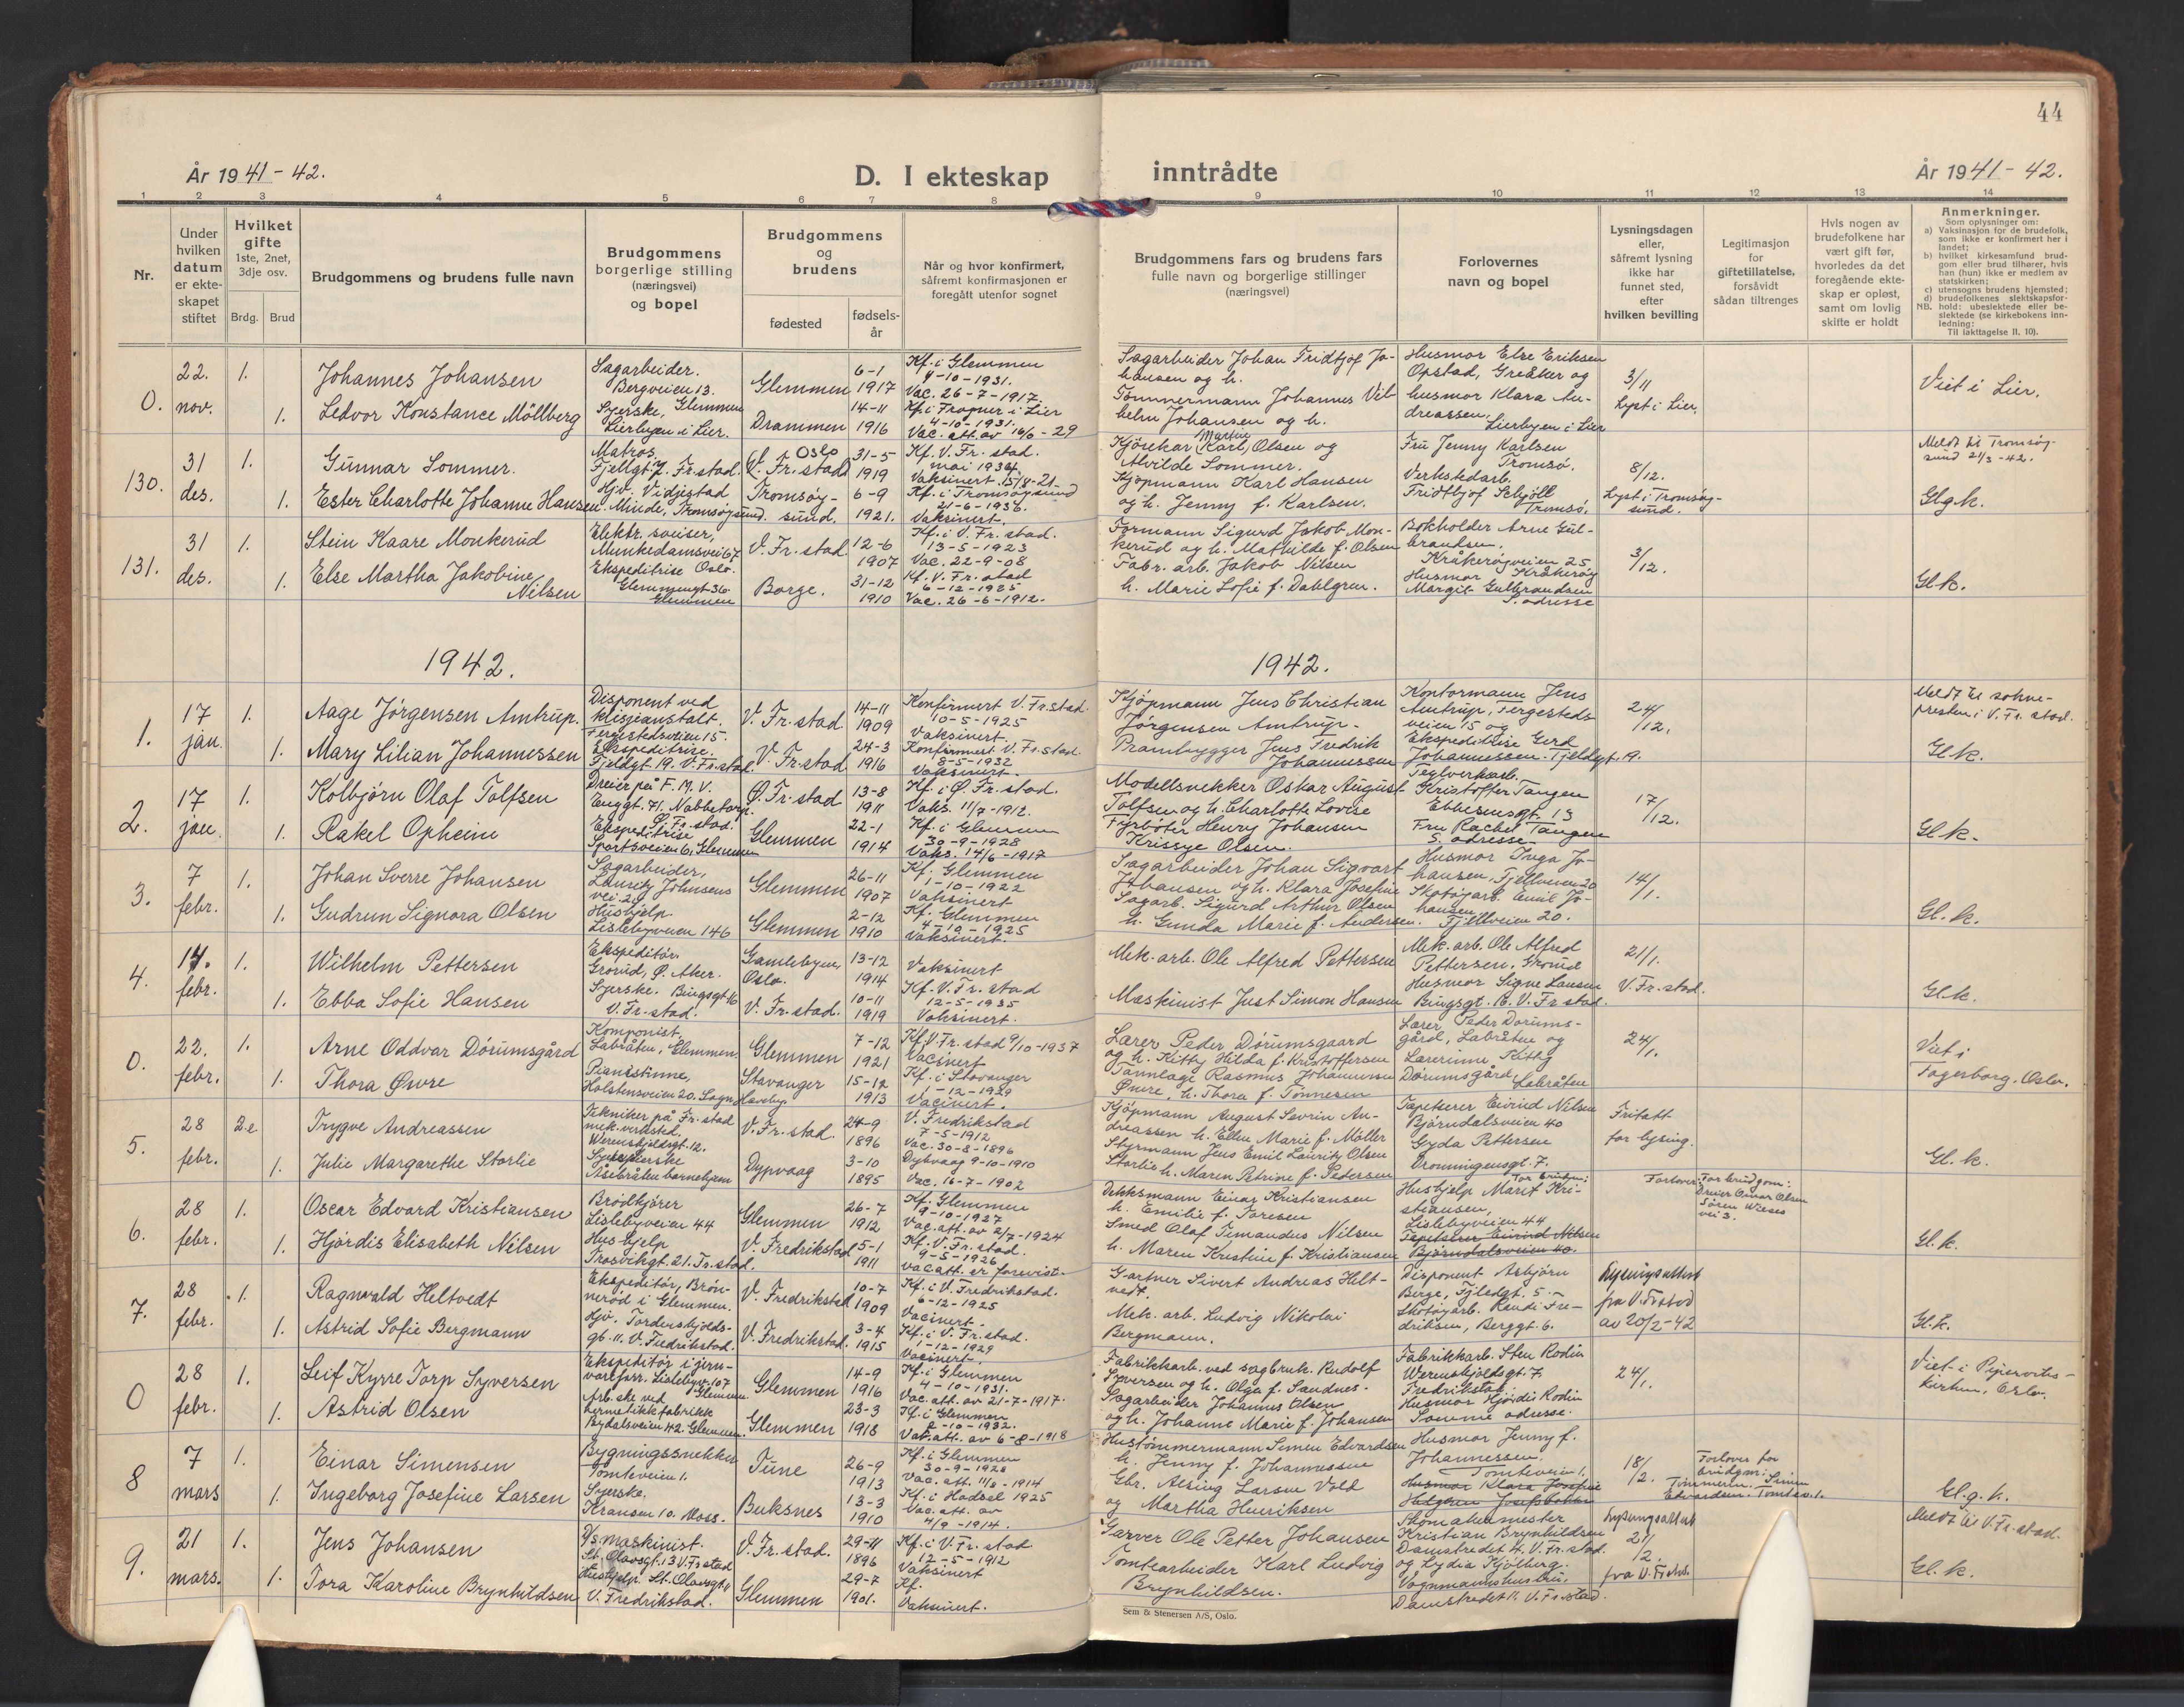 44
År 1941 - 42.
D. I ekteskap
inntrådte
År 1941 - 42.
1 2 3 4 5 6 7 8 9 10 11 12 13 14
Nr.
Under hvilken datum er ekteskapet stiftet
Hvilket gifte 1ste, 2net, 3dje osv.
Brdg. Brud
Brudgommens og brudens fulle navn
Brudgommens borgerlige stilling (næringsvei) og bopel
Brudgommens og brudens
fødested
fødselsår
Når og hvor konfirmert, såfremt konfirmasjonen er foregått utenfor sognet
Brudgommens fars og brudens fars fulle navn og borgerlige stillinger (næringsvei)
Forlovernes navn og bopel
Lysningsdagen eller, såfremt lysning ikke har funnet sted, efter hvilken bevilling
Legitimasjon for giftetillatelse, forsåvidt sådan tiltrenges
Hvis nogen av brudefolkene har vært gift før, hvorledes da det foregående ekteskap er opløst, samt om lovlig skifte er holdt
Anmerkninger.
Som oplysninger om:
a) Vaksinasjon for de brudefolk, som ikke er konfirmert her i landet;
b) hvilket kirkesamfund brudgom eller brud tilhører, hvis han (hun) ikke er medlem av statskirken;
c) utensogns brudens hjemsted;
d) brudefolkenes slektskapsforhold: ubeslektede eller beslektede (se kirkebokens innledning:
NB. Til iakttagelse II, 10).
0. 22. nov. 1. Johannes Johansen
Sagarbeider. Bergveien 13. Glemmen
Glemmen 6-1 1917
Kf. i Glemmen 4-10-1931. Vac. 26-7-1917.
Sagarbeider Johan Fridtjof Johansen og h.
Husmor Else Eriksen Opstad, Greåker og
3/11 Lyst i Lier.
Viet i Lier.
1. Ledvor Konstance Möllberg
Syerske, Lierbyen i Lier.
Drammen 14-11 1916
Kf. i Frogner i Lier 4-10-1931. Vac. att. av 16/6-29
Tömmermann Johannes Vilhelm Johansen og h.
husmor Klara Andreassen, Lierbyen i Lier
130. 31 des. 1. Gunnar Sommer.
Matros. Fjellgt. 7. Fr.stad.
Oslo (V. Fr.stad) 31-5 1919
Kf. V. Fr. stad. mai 1934. Vaksinert 15/8-21
Kjörekar Martin Karl Olsen og Alvilde Sommer.
Fru Jenny Karlsen Tromsö.
8/12. Lyst i Tromsøysund.
Meldt til Tromsøysund 21/3-42.
Gl.g.k.
1. Ester Charlotte Johanne Hansen
Hjv. Vidjestad Minde, Tromsøysund.
Tromsøysund. 6-9 1921.
Kf. i Tromsøysund 21-6-1936. Vaksinert.
Kjøpmann Karl Hansen og h. Jenny f. Karlsen.
Verkstedarb. Fridtjof Schjöll Tromsö.
131. 31 des. 1. Stein Kaare Monkerud
Elektr. sveiser, Munkedamsvei 67 Oslo.
V. Fr. stad. 12-6 1907
Kf. i V. Fr. stad. 13-5-1923 Vac. 22-9-08
Formann Sigurd Jakob Monkerud og h. Mathilde f. Olsen
Bokholder Arne Gulbrandsen, Kråkerøyveien 25, Kråkerøy
3/12.
Gl.k.
1. Else Martha Jakobine Nilsen
Ekspeditrise Glemmengt 36 Glemmen
Borge. 31-12 1910
Kf. V. Fr. stad 6-12-1925 Vac. 26-6-1912.
Fabr. arb. Jakob Nilsen h. Marie Sofie f. Dahlgren.
Husmor Margit Gulbrandsen S. adresse
1942.
1942.
1. 17 jan. 1. Aage Jørgensen Amtrup.
Disponent ved klisjeanstalt. Fergestedsveien 15.
V. Fr. stad. 14-11 1909
Konfirmert V. Fr.stad. 10-5-1925 Vaksinert.
Kjøpmann Jens Christian Jörgensen Amtrup.
Kontormann Jens Amtrup, Fergestedsveien 15 og
24/12.
Meldt til soknepresten i V. Fr. stad.
Gl.k.
1. Mary Lilian Johannessen
Ekspeditrise. Fjeldgt. 19. V. Fr.stad.
V. Fr.stad 24-3 1916
Konfirmert V. Fr.stad. 8-5-1932 Vaksinert.
Prambygger Jens Fredrik Johannessen
Ekspeditrise Gerd Johannessen. Fjeldgt. 19.
2. 17 jan. 1. Kolbjørn Olaf Tolfsen
Dreier på F. M. V. Enggt. 71. Nabbetorp. Ø. Fr. stad.
Ø. Fr. stad 13-8 1911
Kf. i Ø. Fr. stad. Vaks. 11/7-1912.
Modellsnekker Oskar August Tolfsen og h. Charlotte Lovise
Teglverksarb. Kristoffer Tangen Ebbesensgt. 13
17/12.
Gl.k.
1. Rakel Opheim
Ekspeditrise Sportsveien 6, Glemmen
Glemmen 22-1 1914
Kf. i Glemmen 30-9-1928 Vaks. 14/6-1917
Fyrböter Henry Johansen Krissye Olsen.
Fru Rachel Tangen S. adresse.
3. 7 febr. 1. Johan Sverre Johansen
Sagarbeider, Lauritz Johnsens vei 20
Glemmen 26-11 1907
Kf. Glemmen 1-10-1922 Vaksinert
Sagarbeider Johan Sigvart Johansen og h. Klara Josefine
Husmor Inga Johansen, Fjellveien 20
14/1.
Gl.k.
1. Gudrun Signora Olsen
Hushjelp. Lislebyveien 146
Glemmen 2-12 1910
Kf. Glemmen 4-10-1925 Vaksinert.
Sagarb. Sigurd Arthur Olsen h. Gunda Marie f. Andersen.
Skotøyarb. Emil Johansen Fjellveien 20.
4. 14. febr. 1. Wilhelm Pettersen
Ekspeditör. Grorud, Ø. Aker.
Gamlebyen, Oslo. 13-12 1914
Vaksinert
Mek. arb. Ole Alfred Pettersen
Mek. arb. Ole Alfred Pettersen, Grorud
21/1. V. Fr. stad.
Gl.k.
1. Ebba Sofie Hansen
Syerske. Bingsgt 16 V. Fr. stad.
V. Fr. stad. 10-11 1919
Kf. V. Fr. stad 12-5-1935 Vaksinert.
Maskinist Just Simon Hansen
Husmor Signe Hansen Bingsgt. 16. V. Fr stad.
0. 22. febr. 1. Arne Oddvar Dörumsgård
Komponist, Labråten, Glemmen.
Glemmen 7-12 1921
Kf. V. Fr. stad 9/10-1937 Vacinert
Lærer Peder Dörumsgaard og h. Kitty Hilda f. Kristoffersen
Lærer Peder Dorumsgård, Labråten og
24/1.
Viet i Fagerborg, Oslo.
1. Thora Øwre
Pianistinne, Holstensveien 20. Sogn Haveby.
Stavanger 15-12 1913
Kf. i Stavanger 1-12-1929 Vacinert.
Tannlege Rasmus Johannessen Øwre, h. Thora f. Tönnesen
Lærerinne Kitty Dörumsgård, Labråten
5. 28 febr. 2. Trygve Andreassen
Tekniker på Fr.stad mek. verksted. Werenskjoldsgt. 12.
V. Fr. stad. 24-9 1896
V. Fredrikstad 7-5-1912 Vac. 30-8-1896
Kjöpmann August Sevrin Andreassen h. Ellen Marie f. Möller
Tapetserer Eivind Nilsen Bjørndalsveien 40
Fritatt for lysing.
Gl.k.
1. Julie Margarethe Storlie
Sykepleierske Åsebråten barnehjem
Dypvaag 3-10 1895
Dybvaag 9-10-1910 Vac. 16-7-1902
Styrmann Jens Emil Lauritz Olsen Storlie h. Maren Petrine f. Pedersen
Gyda Pettersen Dronningensgt. 7.
6. 28 febr. 1. Oscar Edvard Kristiansen
Brödkjörer Lislebyveien 44
Glemmen 26-7 1912
Kf. Glemmen 9-10-1927 Vac. att. av 2/7-1924
Dekksmann Einar Kristiansen h. Emilie f. Toresen
For bruden: Hushjelp Marit Kristiansen, Lislebyveien 44
Forlover: For brudgom: Dreier Oscar Olsen Sören Wieses vei 3.
Gl.k.
1. Hjørdis Elisabeth Nilsen
Hushjelp Trosvikgt. 21. Fr. stad.
V. Fredrikstad 5-1 1911
Kf. V. Fr. stad. 9-5-1926 vac att. er forevist.
Smed Olaf Timandus Nilsen h. Maren Kristine f. Kristiansen
Tapetserer Eivind Nilsen Bjørndalsveien 40.
7. 28 febr. 1. Ragnvald Heltvedt
Ekspeditör, Brönnerød i Glemmen.
V. Fredrikstad 10-7 1909
Kf. i V. Fredrikstad. 6-12-1925 Vacinert.
Gartner Sivert Andreas Heltvedt.
Disponent Asbjörn Berge, Fjeldgt. 5.
Lysningsattest fra V. Frstad av 20/2-42
Gl.k.
1. Astrid Sofie Bergmann
Hjv. Tordenskjoldsgt. 11. V. Fredrikstad.
V. Fredrikstad. 3-4 1915
Kf. i V. Fr. stad. 1-12-1929 Vacinert.
Mek. arb. Ludvig Nikolai Bergmann.
Skotøyarb. Randi Fredriksen, Berggt. 6.
0 28 febr. 1. Leif Kyrre Torp Syversen
Ekspeditör i jernvareforr. Lislebyv. 107 Glemmen
Glemmen 14-9 1916
Kf. i Glemmen 4-10-1931. Vac. att. av 21-7-1917.
Fabrikkarb. ved sagbruk. Rudolf Syversen og h. Olga f. Sandnes.
Fabrikkarb. Sten Rodin Werenskjoldsgt. 7, Fredrikstad.
24/1.
1. Astrid Olsen
Arb.ske ved hermetikkfabrikk Rydalsveien 42. Glemmen.
Glemmen 23-3 1918
Kf. i Glemmen 2-10-1932. Vac. att. av 6-8-1918
Sagarbeider Johannes Olsen og h. Johanne Marie f. Johansen
Husmor Hjördis Rodin Samme adresse.
8 7 mars 1. Einar Simensen
Bygningssnekker Tomteveien 1.
Tune 26-9 1913
Kf. i Glemmen 30-9-1928 Vac. att. 11/3-1914
Hustömmermann Simen Edvardsen h. Jenny f. Johannessen
Husmor Jenny f. Johannessen. Tomteveien 1.
18/2.
Forlover for brudgm: Tömmerm. Simen Edvardsen. Tomtev. 1.
Gl.g.k.
1. Ingeborg Josefine Larsen
Syerske. Kransen 10. Moss.
Buksnes 13-3 1910
Kf. i Hadsel 1925 Vac. att. av 4/9-1914.
Gbr. Alsing Larsen Vold og Martha Henriksen
Husmor Klara Josefine
9. 21 mars. 1. Jens Johansen
D/s maskinist. St. Olavsgt. 13 V. Fr stad
V. Fr. stad. 29-11 1896
Kf. i V. Fr. stad 12-5-1912 Vaksinert
Garver Ole Petter Johansen
Kristian Brynhildsen Damstredet 4. V. Fr. stad.
Lysningsattest 21/2 fra V. Fr.stad.
Meldt til V. Fr. stad.
Gl.k.
1. Tora Karoline Brynhildsen
Hushjelp. St. Olavsgt. 11 V. Fredrikstad.
Glemmen 29-7 1901.
Kf. Vaksinert.
Tomtearbeider Karl Ludvig Brynhildsen.
og Lydia Kjölberg. Vognmannshustru. Damstredet 11. V. Fr. stad.
Sem & Stenersen A/S, Oslo.